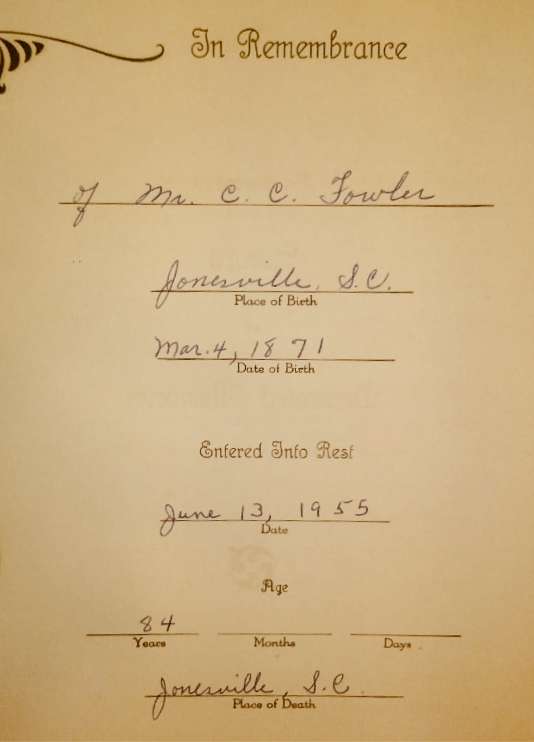 In Remembrance
of Mr. C. C. Fowler
Jonesville, S.C.
Place of Birth
Mar. 4, 1871
Date of Birth
Entered Into Rest
June 13, 1955
Date
Age
84
Years Months Days
Jonesville, S.C.
Place of Death